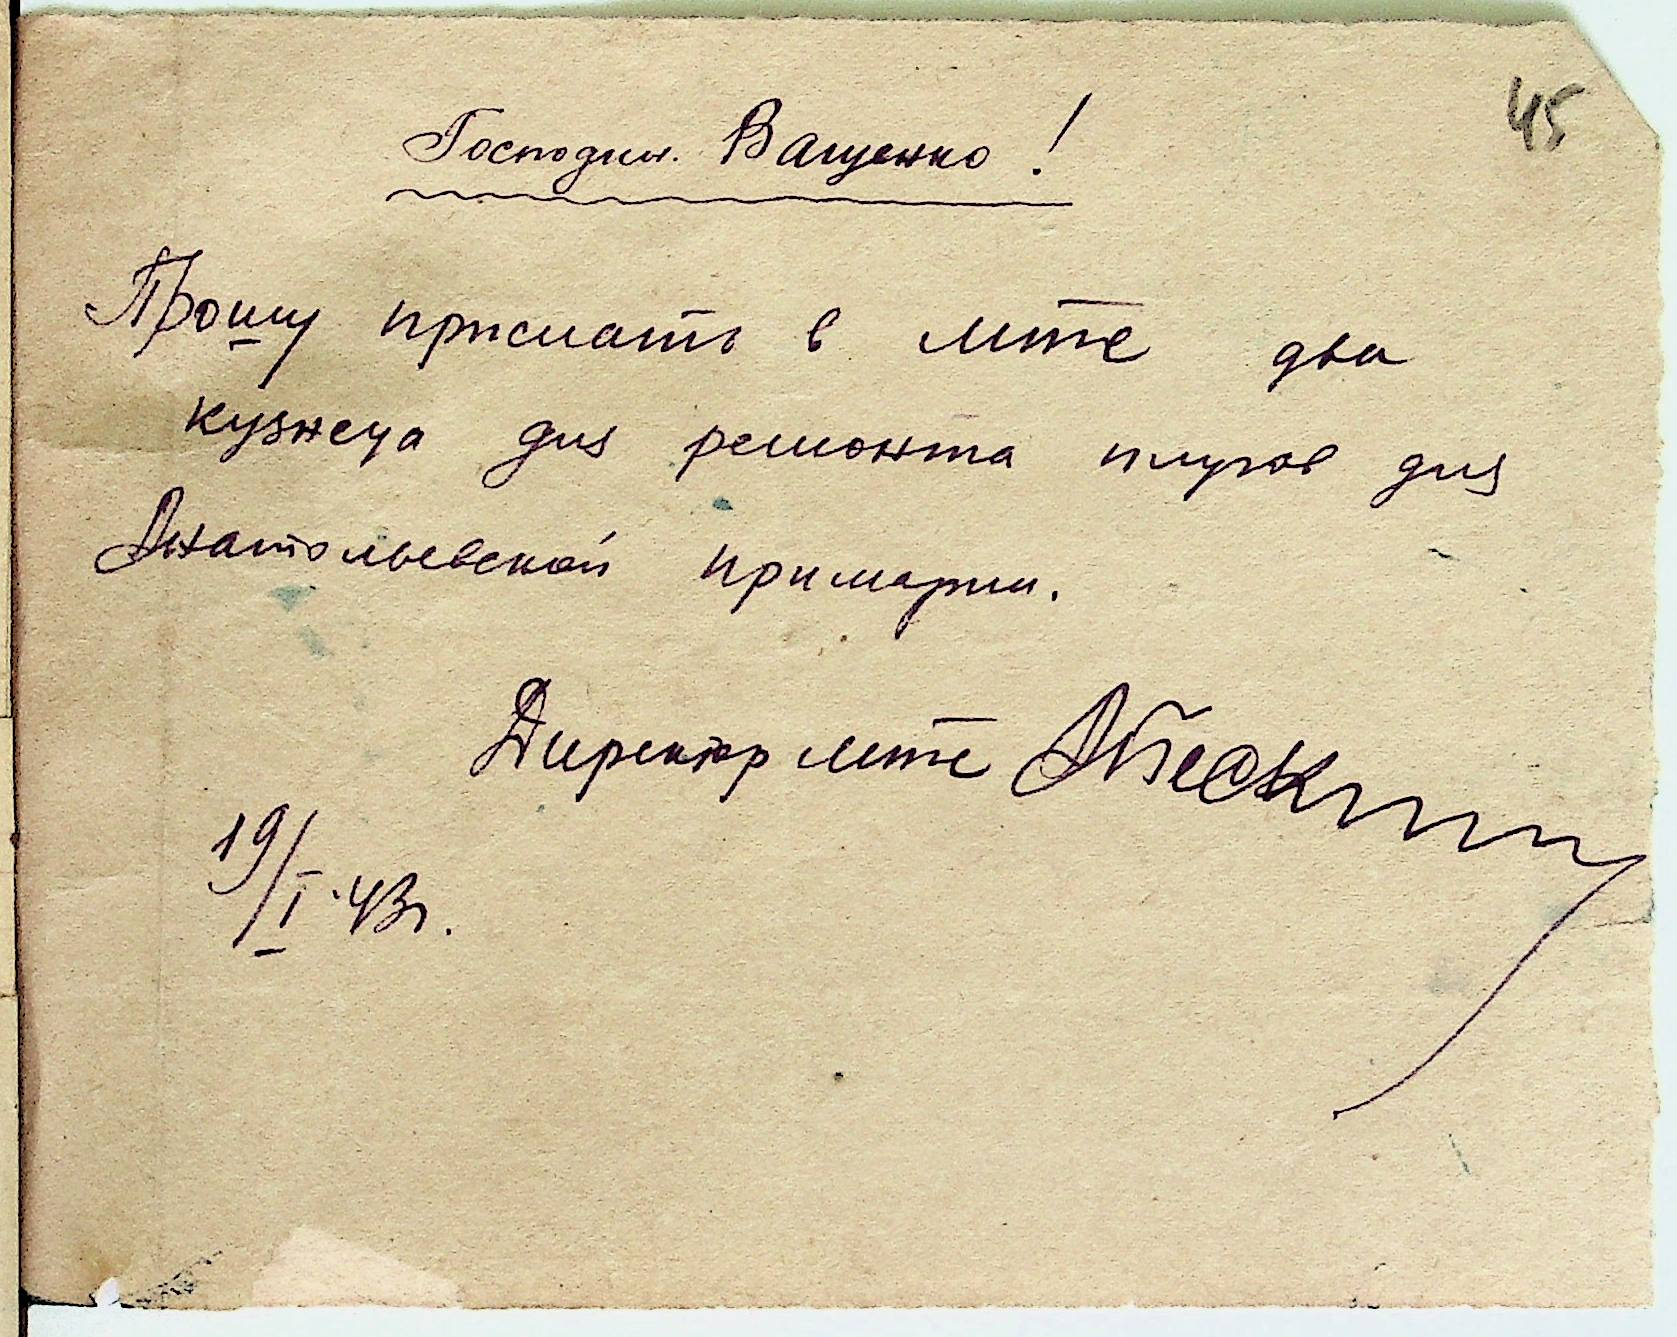 45
Господин. Ващенко!
Прошу прислать в мтс два
кузнеца для ремонта плугов для
Анатольевской примарии.
Директор мтс
19/I-43г.